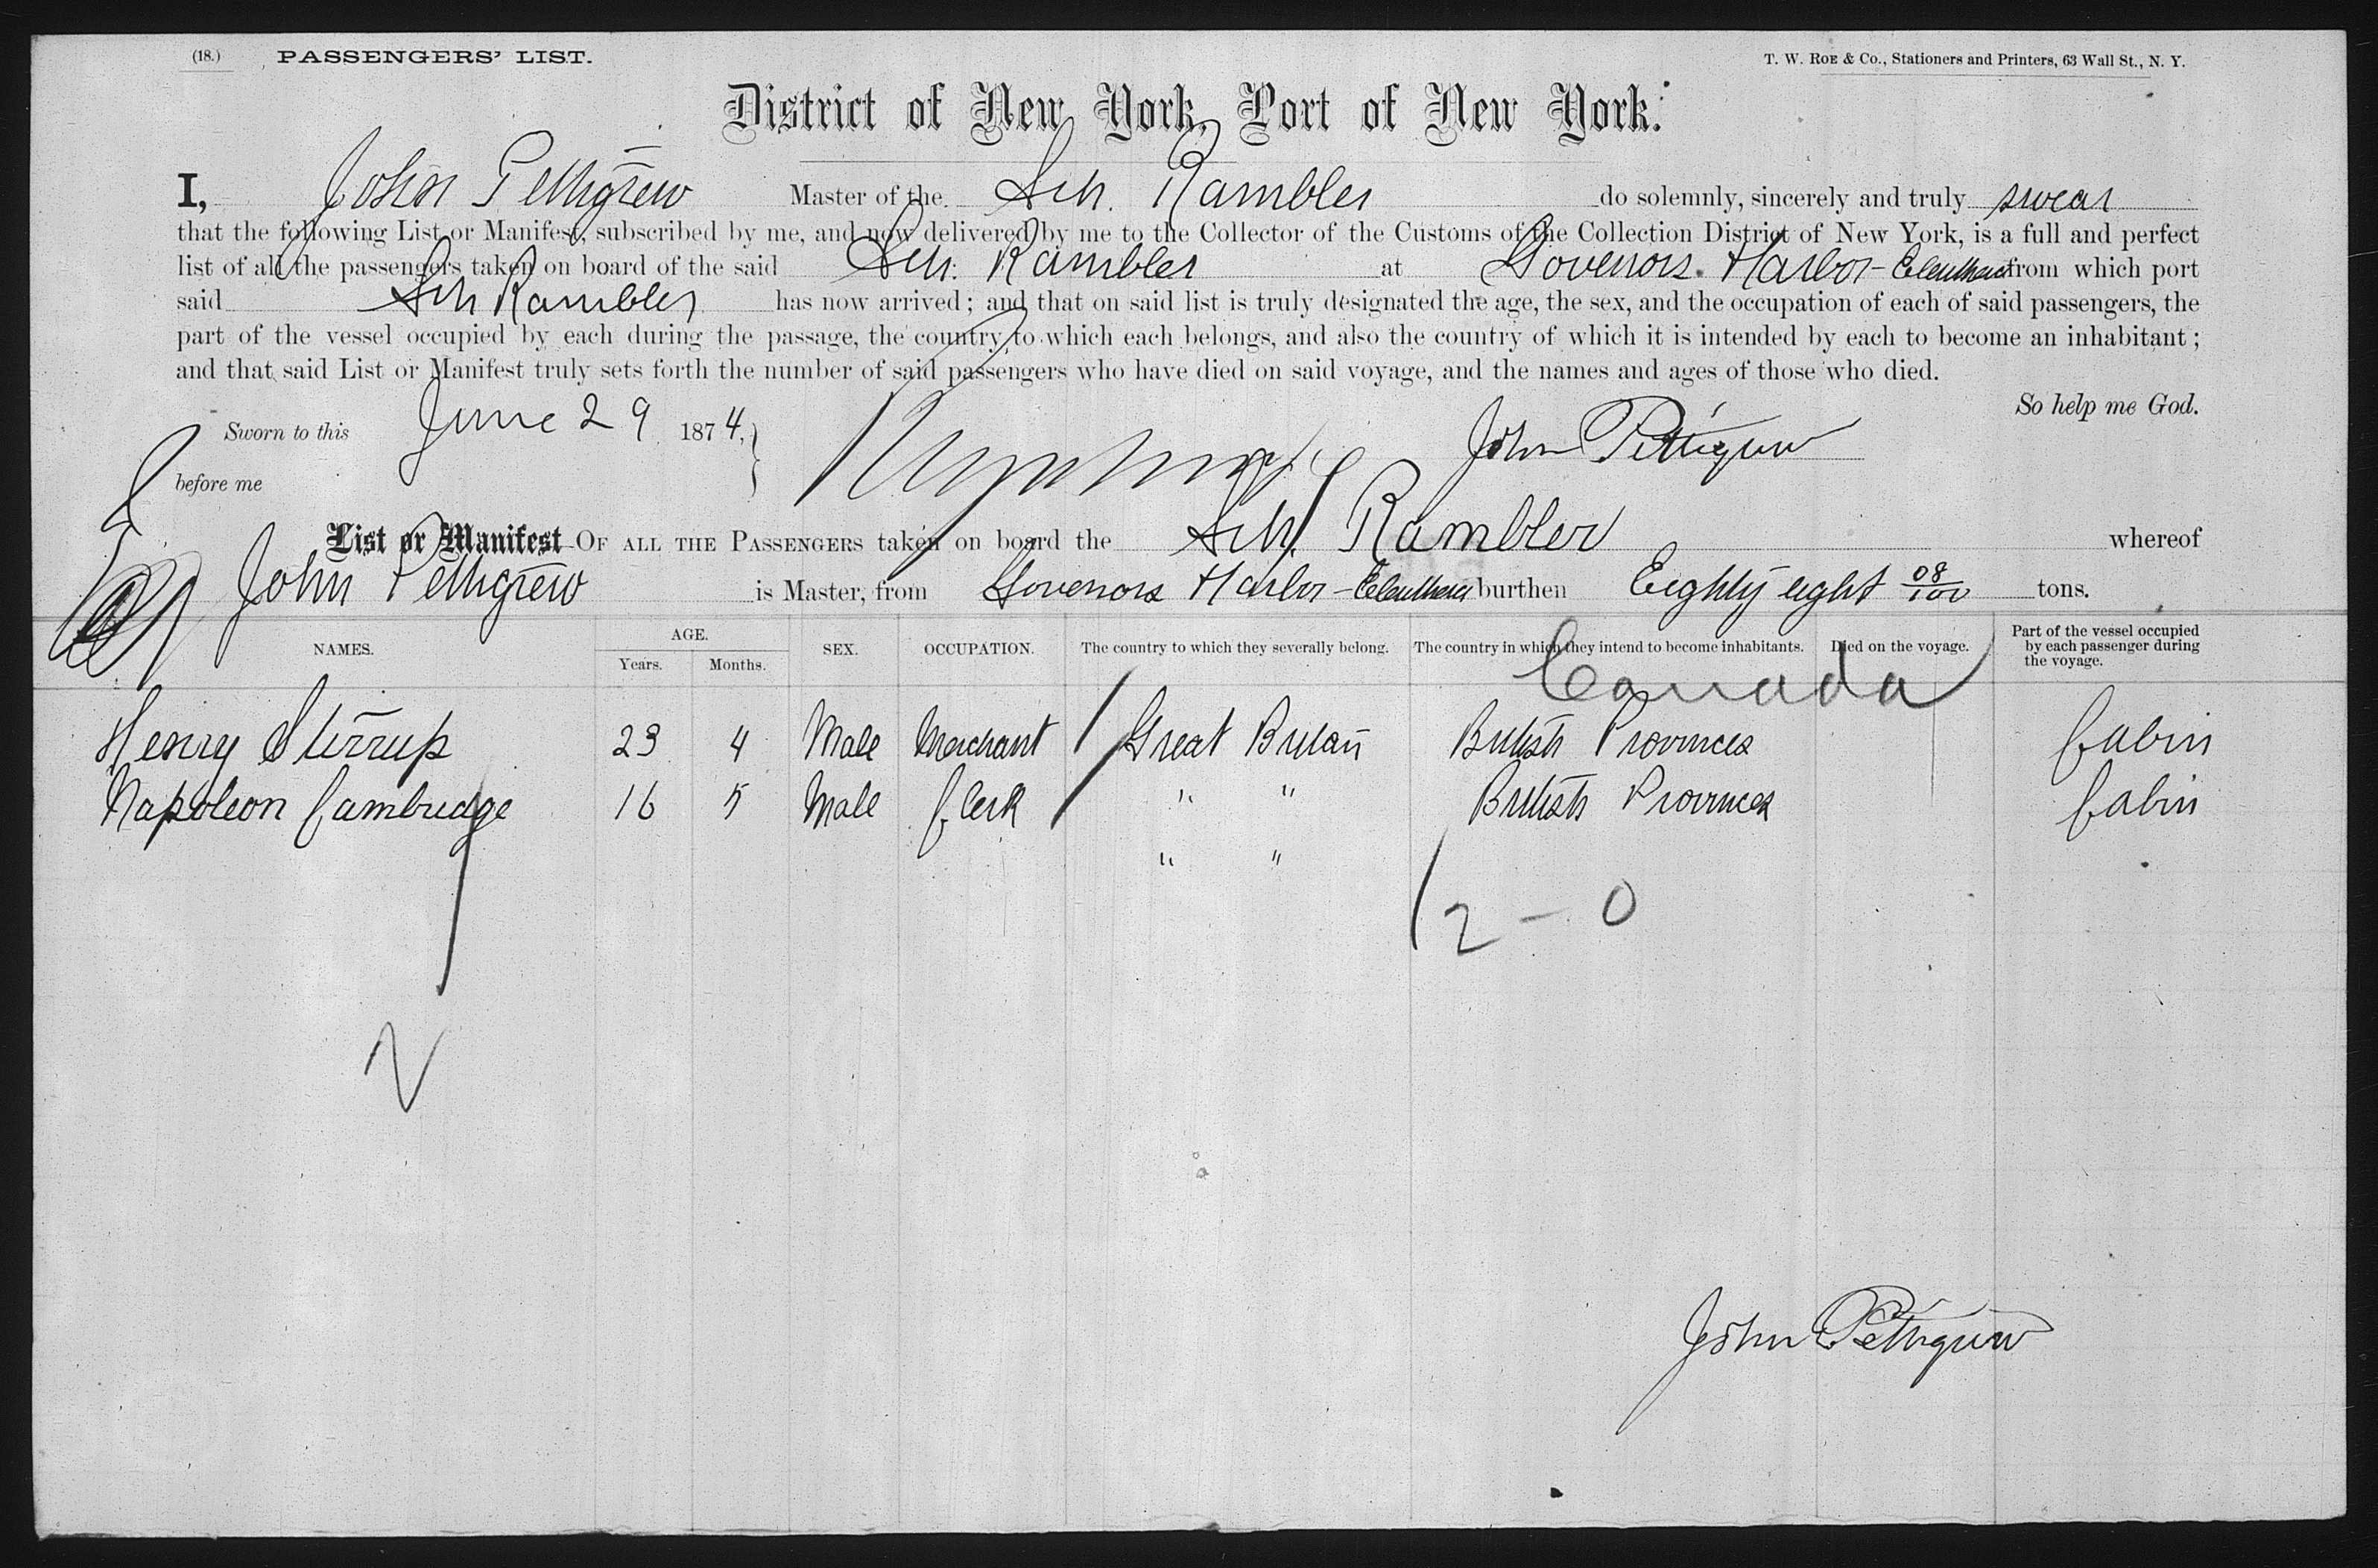 (18.) PASSENGERS' LIST. T. W. ROE & Co., Stationers and Printers, 63 Wall St., N. Y.
District of New York, Port of New York.
I, John Pettigrew Master of the Sch. Rambler do solemnly, sincerely and truly swear
that the following List or Manifest, subscribed by me, and now delivered by me to the Collector of the Customs of the Collection District of New York, is a full and perfect
list of all the passengers taken on board of the said Sch. Rambler at Govenors Harbor - Eleuthera from which port
said Sch Rambler has now arrived; and that on said list is truly designated the age, the sex, and the occupation of each of said passengers, the
part of the vessel occupied by each during the passage, the country to which each belongs, and also the country of which it is intended by each to become an inhabitant;
and that said List or Manifest truly sets forth the number of said passengers who have died on said voyage, and the names and ages of those who died.
So help me God.
Sworn to this June 29 1874, John Pettigrew
before me
List or Manifest OF ALL THE PASSENGERS taken on board the Sch. Rambler whereof
John Pettigrew is Master, from Govenors Harbor - Eleuthera burthen Eighty eight 08/100 tons.
NAMES. AGE. Years. Months. SEX. OCCUPATION. The country to which they severally belong. The country in which they intend to become inhabitants. Died on the voyage. Part of the vessel occupied by each passenger during the voyage.
Canada
Henry Stirrup 23 4 Male Merchant Great Britain British Provinces Cabin
Napoleon Cambridge 16 5 Male Clerk " " British Provinces Cabin
" "
2 - 0
2
John Pettigrew